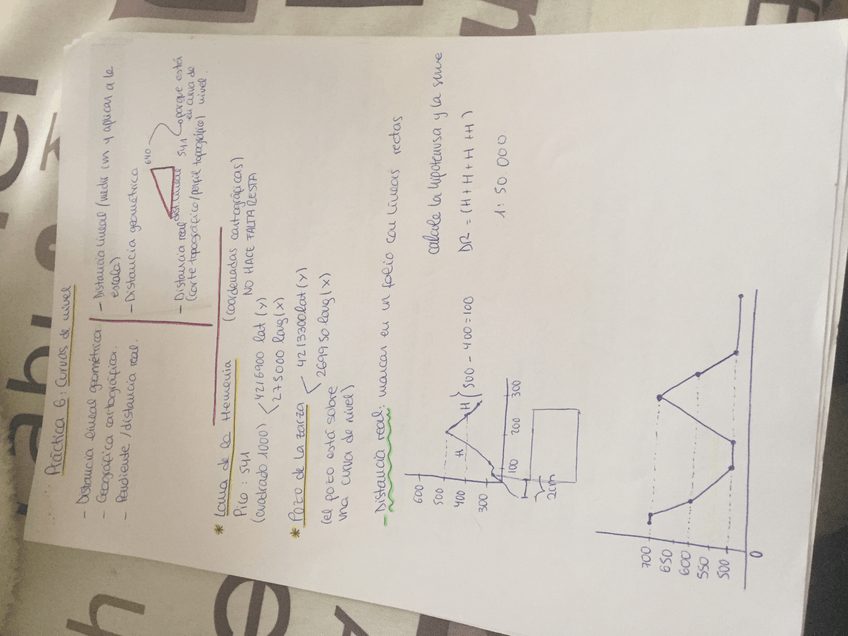 Práctica 6: Curvas de nivel
- Distancia lineal geométrica
- Geográfica cartográfica.
- Pendiente / distancia real.
- Distancia lineal (medir cm y aplicar a la
escala)
- Distancia geométrica
640
- Distancia real dist lineal 541 → porque está
en curva de
nivel.
(corte topográfico / perfil topográfico)
* Loma de la Hemenia
Pico: 541 (coordenadas cartográficas)
(cuadrado 1000) < 4216900 lat (y) NO HACE FALTA RESTA
275000 long (x)
* Pozo de la zarza < 4213300 lat (y)
269950 long (x)
(el pozo está sobre
una curva de nivel)
- Distancia real: marcar en un folio con líneas rectas
600
500
400
300
H
H } 500 - 400 = 100
100 200 300
2cm
calcule la hipotenusa y la sume
DR = (H + H + H + H)
1:50 000
700
650
600
550
500
0